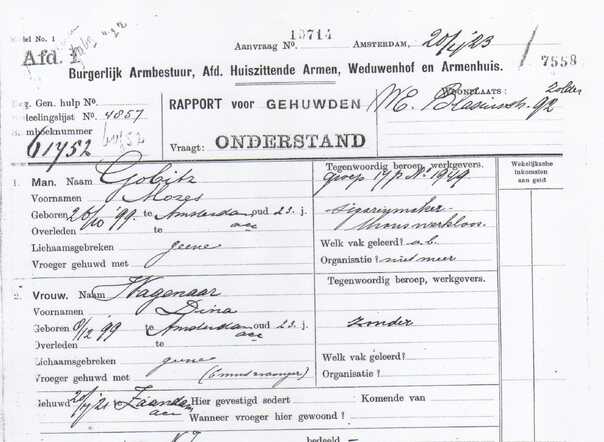 Model No. 1
Afd. 1
13714
Aanvraag No.
AMSTERDAM, 20/4/23
7558
Burgerlijk Armbestuur, Afd. Huiszittende Armen, Weduwenhof en Armenhuis.
Reg. Gen. hulp No.
Bedeelingslijst No. 4857
Stamboeknummer 61752
61752
RAPPORT voor GEHUWDEN
WOONPLAATS: zolder
M. Blasiusstr. 92
Vraagt: ONDERSTAND
Tegenwoordig beroep, werkgevers.
Wekelijksche inkomsten aan geld
1. Man. Naam Gobitz
groep 17 p. No 1949
Voornamen Mozes
Geboren 26/10 '99 te Amsterdam oud 23 j.
sigarenmaker
Overleden te
thans werkloos.
Lichaamsgebreken geene
Welk vak geleerd? a.b.
Vroeger gehuwd met
Organisatie? niet meer
Tegenwoordig beroep, werkgevers.
2. Vrouw. Naam Wagenaar
Voornamen Dina
Geboren 9/12 99 te Amsterdam oud 23 j.
zonder
Overleden te
Lichaamsgebreken geene
Welk vak geleerd?
Vroeger gehuwd met (6 mnd zwanger)
Organisatie?
Gehuwd te Zaandam
Hier gevestigd sedert
Komende van
Wanneer vroeger hier gewoond?
bedeeld